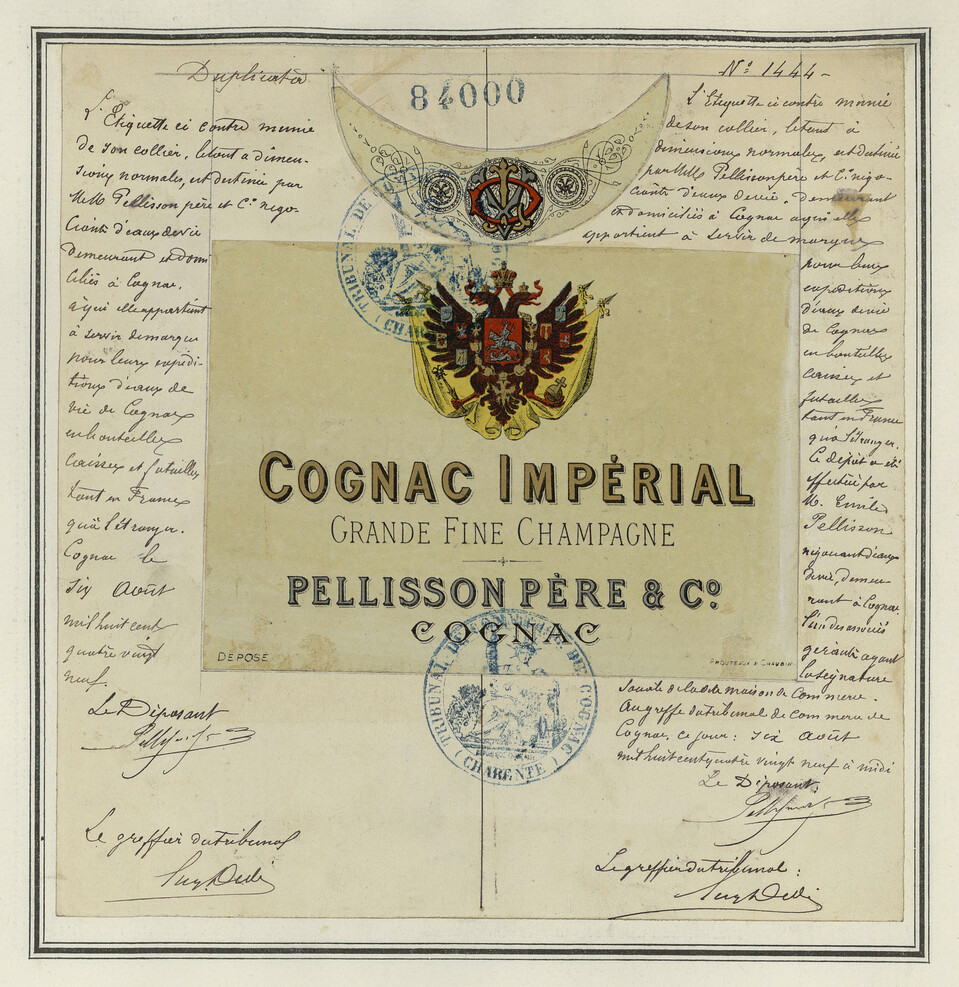 Duplicata
84000
Nº 1444-
L'Etiquette ci contre munie
de son collier, le tout a dimen-
sions normales, est destinée par
MM Pellisson père et Cº négo-
ciants d'eaux de vie
demeurant et domi
ciliés à Cognac,
à qui elle appartient
à servir de marque
pour leurs expédi-
tions d'eaux de
vie de Cognac
en bouteilles
caisses et futailles
tant en France
qu'à l'étranger.
Cognac le
six Août
mil huit cent
quatre vingt
neuf.
Le Déposant
Le greffier du tribunal
COGNAC IMPÉRIAL
GRANDE FINE CHAMPAGNE
PELLISSON PÈRE & Cº
COGNAC
DÉPOSÉ
TRIBUNAL DE COMMERCE DE COGNAC
(CHARENTE)
L'Etiquette ci contre munie
de son collier, le tout à
dimensions normales, est destinée
par MM Pellisson père et Cº négo-
ciants d'eaux de vie. demeurant
et domiciliés à Cognac a qui elle
appartient à servir de marque
pour leurs
expéditions
d'eaux de vie
de Cognac
en bouteilles
caisses et
futailles
tant en France
qu'à l'étranger.
Ce dépôt a été
effectué par
M. Emile
Pellisson
négociant d'eaux
de vie, demeu-
rant à Cognac
l'un des associés
gérants ayant
la signature
sociale de la dite maison de Commerce.
Au greffe du tribunal de commerce de
Cognac, ce jour: six Août
mil huit cent quatre vingt neuf à midi
Le Déposant,
Le greffier du tribunal: